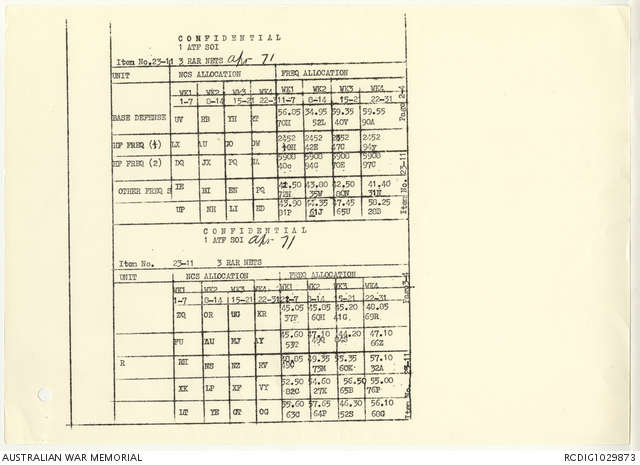 CONFIDENTIAL
1 ATF SOI
Item No.23-11 3 RAR NETS Apr 71
UNIT NCS ALLOCATION FREQ ALLOCATION
WK1 WK2 WK3 WK4 WK1 WK2 WK3 WK4
1-7 8-14 15-21 22-31 1-7 8-14 15-21 22-31
BASE DEFENSE UV HB YH 56.05 34.95 59.35 59.55
70H 52L 40V 90A
HF FREQ (1) LX AU GO OW 2452 2452 2452 2452
42E 47C 94Y
HF FREQ (2) DQ JX PQ 5908 5908 5908 5908
94G 70E 97C
OTHER FREQ S IE NI EN PQ 42.50 43.80 42.50 41.40
72N 35W 80N 31N
UP NH LI ED 43.90 44.35 47.45 58.25
81P 61J 65U 28B
Page 2-4
Item No. 23-11
CONFIDENTIAL
1 ATF SOI Apr 71
Item No. 23-11 3 RAR NETS
UNIT NCS ALLOCATION FREQ ALLOCATION
WK1 WK2 WK3 WK4 WK1 WK2 WK3 WK4
1-7 8-14 15-21 22-31 1-7 8-14 15-21 22-31
ZQ OR UG KR 45.05 45.85 45.20 48.85
37F 60H 41G 69R
FU AU MJ AY 45.60 47.10 44.20 47.10
53T 49Q 84S 66Z
R NS NZ RV 48.85 49.35 55.35 57.10
49C 73M 60K 32A
XK LP XF VY 52.50 54.60 56.50 55.00
82C 27K 65B 76P
LT YE GT OG 55.60 57.65 46.30 56.10
63C 64P 52S 68G
Page 3-4
AUSTRALIAN WAR MEMORIAL RCDIG1029873